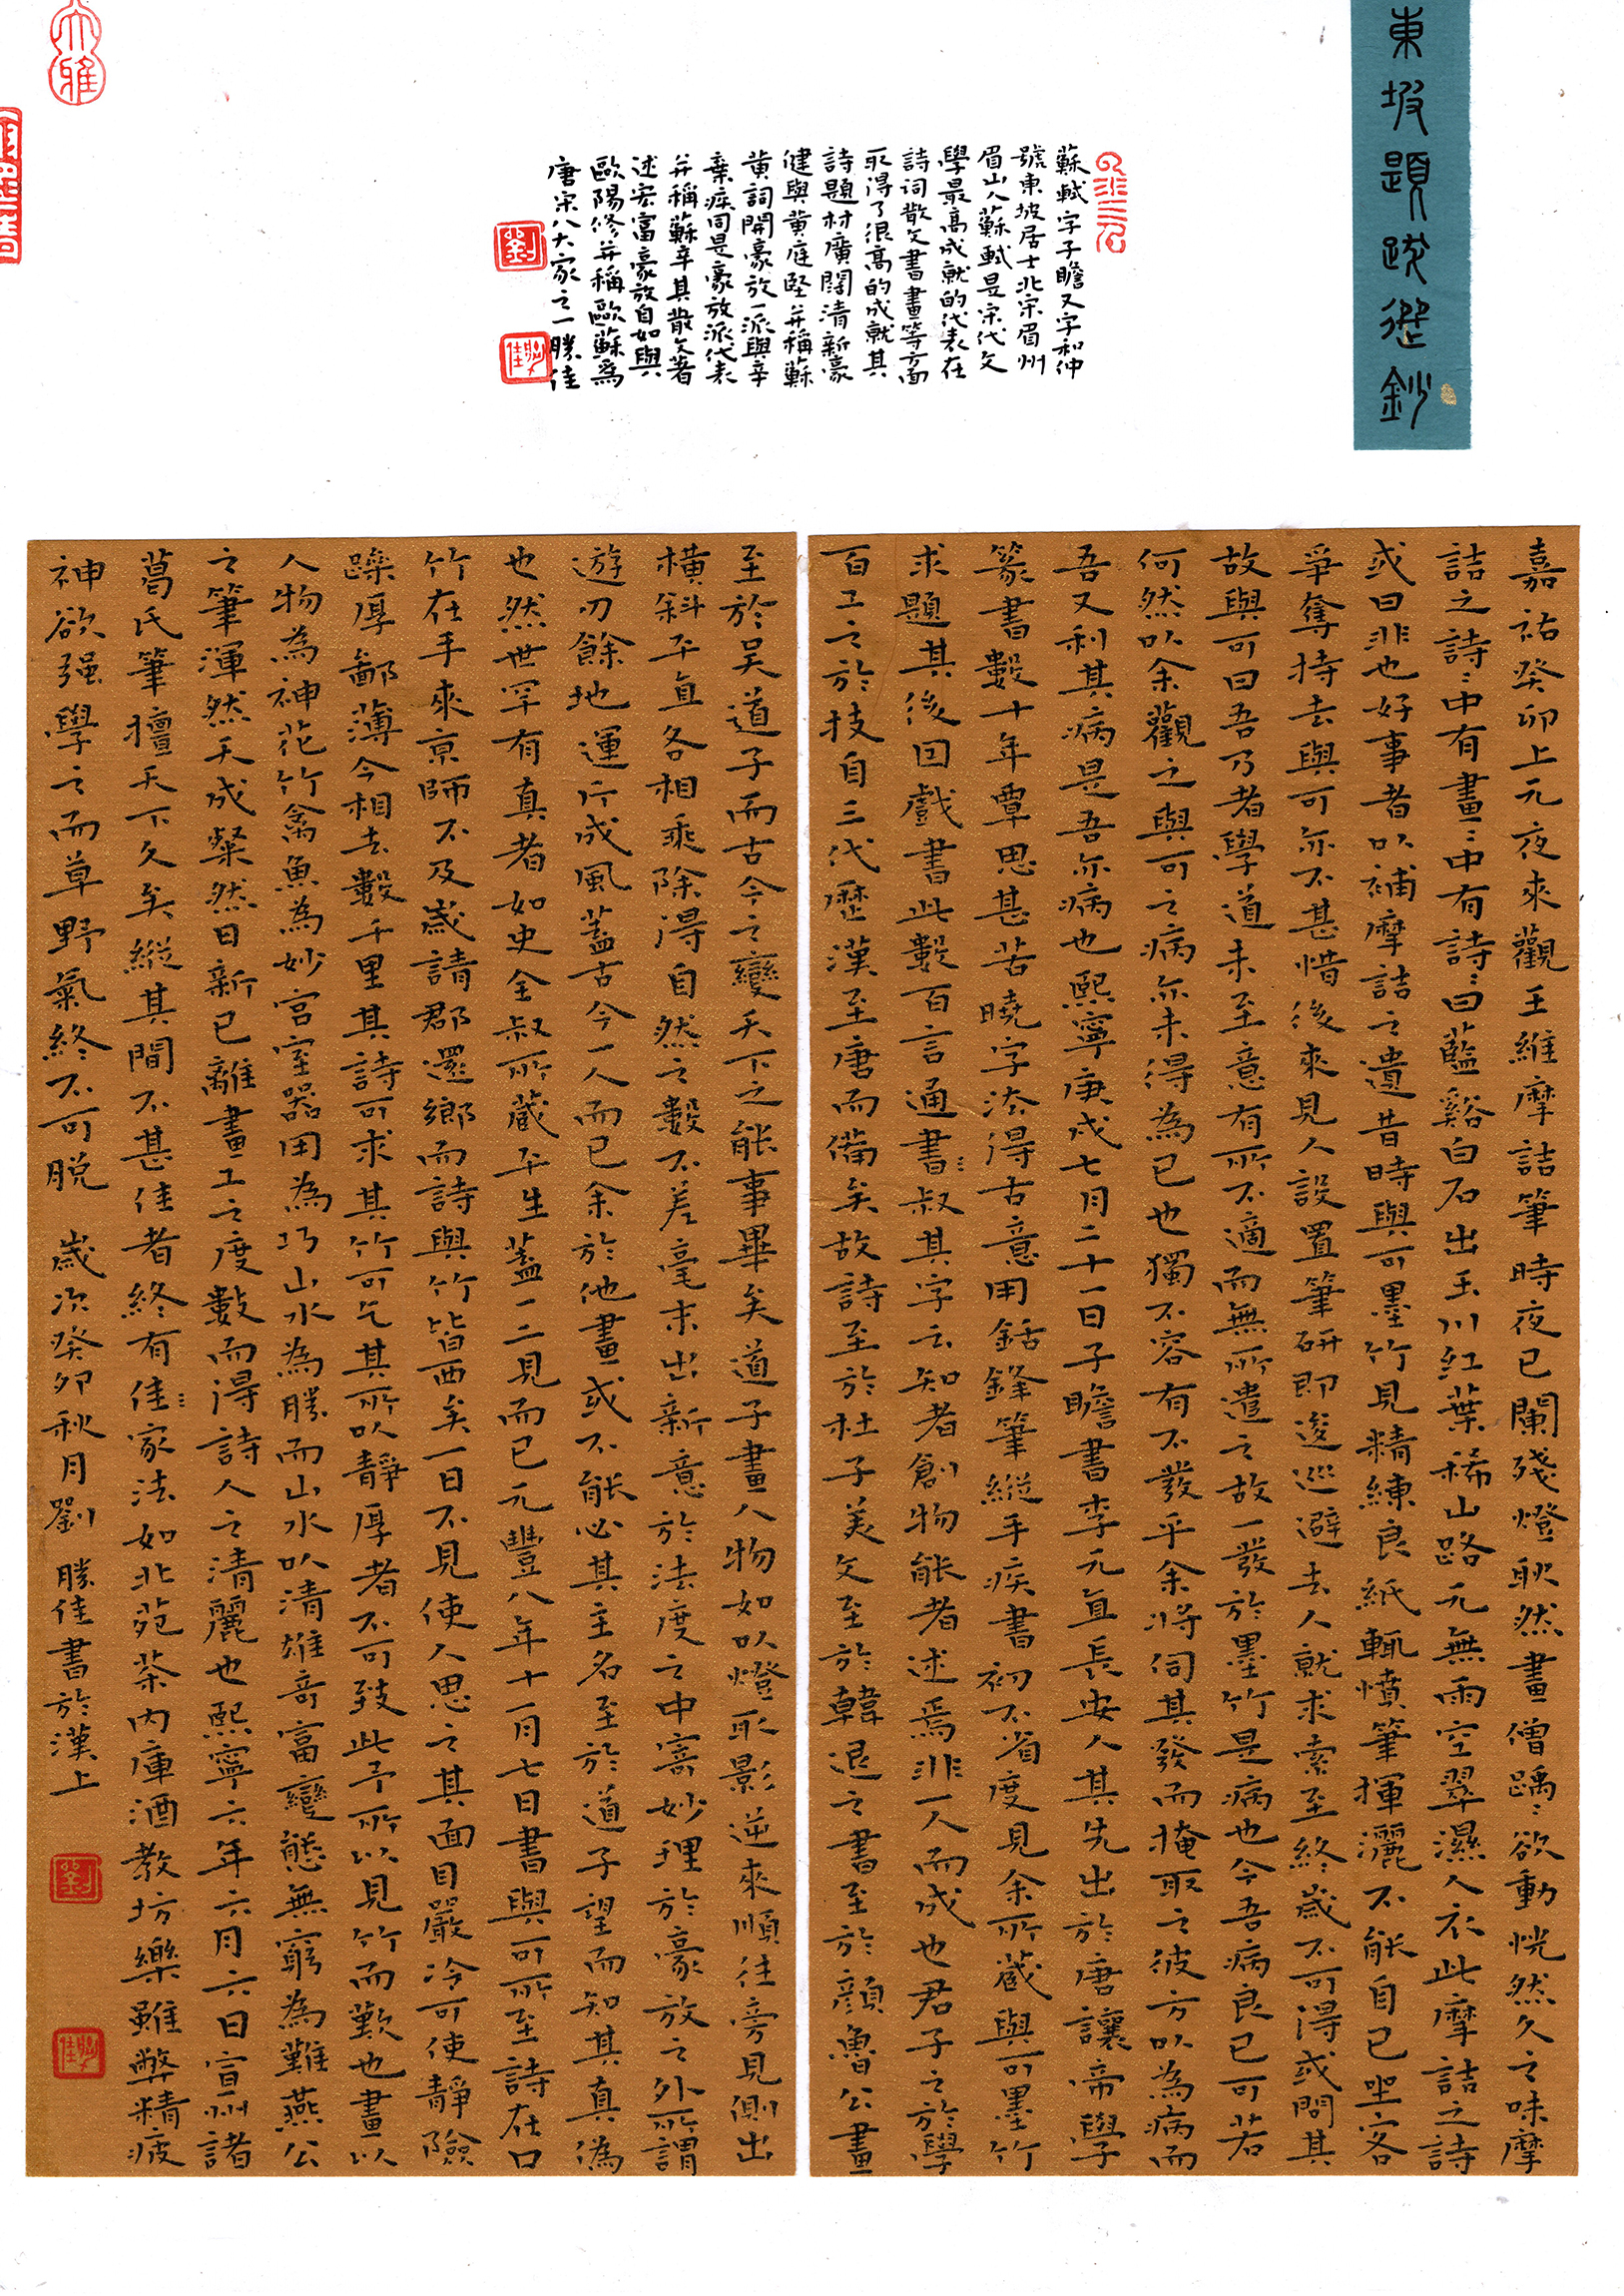 東坡題跋選鈔
蘇軾字子瞻又字和仲
號東坡居士北宋眉州
眉山人蘇軾是宋代文
學最高成就的代表在
詩词散文書畫等方面
取得了很高的成就其
詩題材廣闊清新豪
健與黄庭堅并稱蘇
黄詞開豪放一派與辛
棄疾同是豪放派代表
并稱蘇辛其散文著
述宏富豪放自如與
歐陽修并稱歐蘇爲
唐宋八大家之一勝佳
劉
勝佳
大雅
嘉祐癸卯上元夜來觀王維摩詰筆時夜已闌殘燈耿然畫僧踽〻欲動恍然久之味摩
詰之詩〻中有畫〻中有詩〻曰藍谿白石出玉川紅葉稀山路元無雨空翠濕人衣此摩詰之詩
或曰非也好事者以補摩詰之遺昔時與可墨竹見精練良紙輒憤筆揮灑不能自已坐客
爭奪持去與可亦不甚惜後來見人設置筆研即逡巡避去人就求索至終歲不可得或問其
故與可曰吾乃者學道未至意有所不適而無所遣之故一發於墨竹是病也今吾病良已可若
何然以余觀之與可之病亦未得為已也獨不容有不發乎余將伺其發而掩取之彼方以為病而
吾又利其病是吾亦病也熙寧庚戌七月二十一日子瞻書李元直長安人其先出於唐讓帝學
篆書數十年覃思甚苦曉字法得古意用銛鋒筆縱手疾書初不省度見余所藏與可墨竹
求題其後因戲書此數百言通書〻叔其字云知者創物能者述焉非一人而成也君子之於學
百工之於技自三代歷漢至唐而備矣故詩至於杜子美文至於韓退之書至於顏魯公畫
至於吴道子而古今之變天下之能事畢矣道子畫人物如以燈取影逆來順往旁見側出
橫斜平直各相乘除得自然之數不差毫末出新意於法度之中寄妙理於豪放之外所謂
遊刃餘地運斤成風蓋古今一人而已余於他畫或不能必其主名至於道子望而知其真偽
也然世罕有真者如史全叔所藏平生蓋一二見而已元豐八年十一月七日書與可所至詩在口
竹在手來京師不及歲請郡還鄉而詩與竹皆西矣一日不見使人思之其面目嚴冷可使靜險
躁厚鄙薄今相去數千里其詩可求其竹可乞其所以靜厚者不可致此予所以見竹而歎也畫以
人物為神花竹禽魚為妙宮室器用為巧山水為勝而山水以清雄奇富變態無窮為難燕公
之筆渾然天成粲然日新已離畫工之度數而得詩人之清麗也熙寧六年六月六日宣州諸
葛氏筆擅天下久矣縱其間不甚佳者終有佳〻家法如北苑茶内庫酒教坊樂雖弊精疲
神欲强學之而草野氣終不可脱　歲次癸卯秋月劉　勝佳書於漢上
劉
勝佳